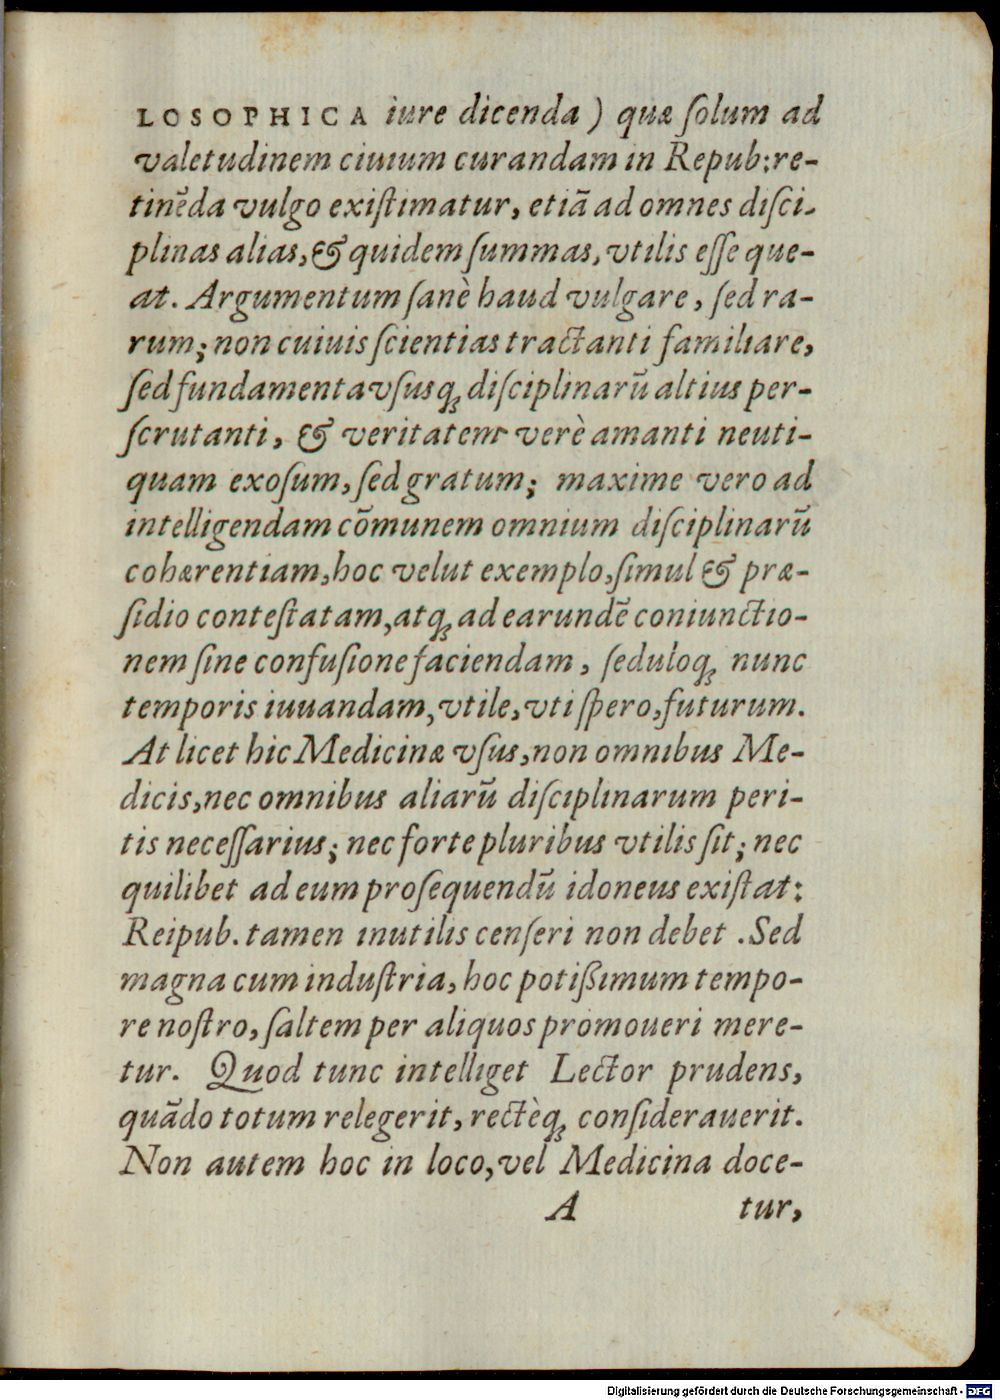 LOSOPHICA iure dicenda) quæ ſolum ad
valetudinem ciuium curandam in Repub:re-
tinẽda vulgo exiſtimatur, etiã ad omnes diſci-
plinas alias, & quidem ſummas, vtilis eſſe que-
at. Argumentum ſanè haud vulgare, ſed ra-
rum; non cuiuis ſcientias tractanti familiare,
ſed fundamenta vſusq́ꝫ diſciplinarũ altius per-
ſcrutanti, & veritatem verè amanti neuti-
quam exoſum, ſed gratum; maxime vero ad
intelligendam cõmunem omnium diſciplinarũ
cohærentiam, hoc velut exemplo, ſimul & præ-
ſidio conteſtatam, atqꝫ ad earundẽ coniunctio-
nem ſine confuſione faciendam, ſeduloqꝫ nunc
temporis iuuandam, vtile, vti ſpero, futurum.
At licet hic Medicinæ vſus, non omnibus Me-
dicis, nec omnibus aliarũ diſciplinarum peri-
tis neceſſarius; nec forte pluribus vtilis ſit; nec
quilibet ad eum proſequendũ idoneus exiſtat:
Reipub. tamen inutilis cenſeri non debet. Sed
magna cum induſtria, hoc potißimum tempo-
re noſtro, ſaltem per aliquos promoueri mere-
tur. Quod tunc intelliget Lector prudens,
quãdo totum relegerit, rectèqꝫ conſiderauerit.
Non autem hoc in loco, vel Medicina doce-
A tur,
Digitalisierung gefördert durch die Deutsche Forschungsgemeinschaft - DFG